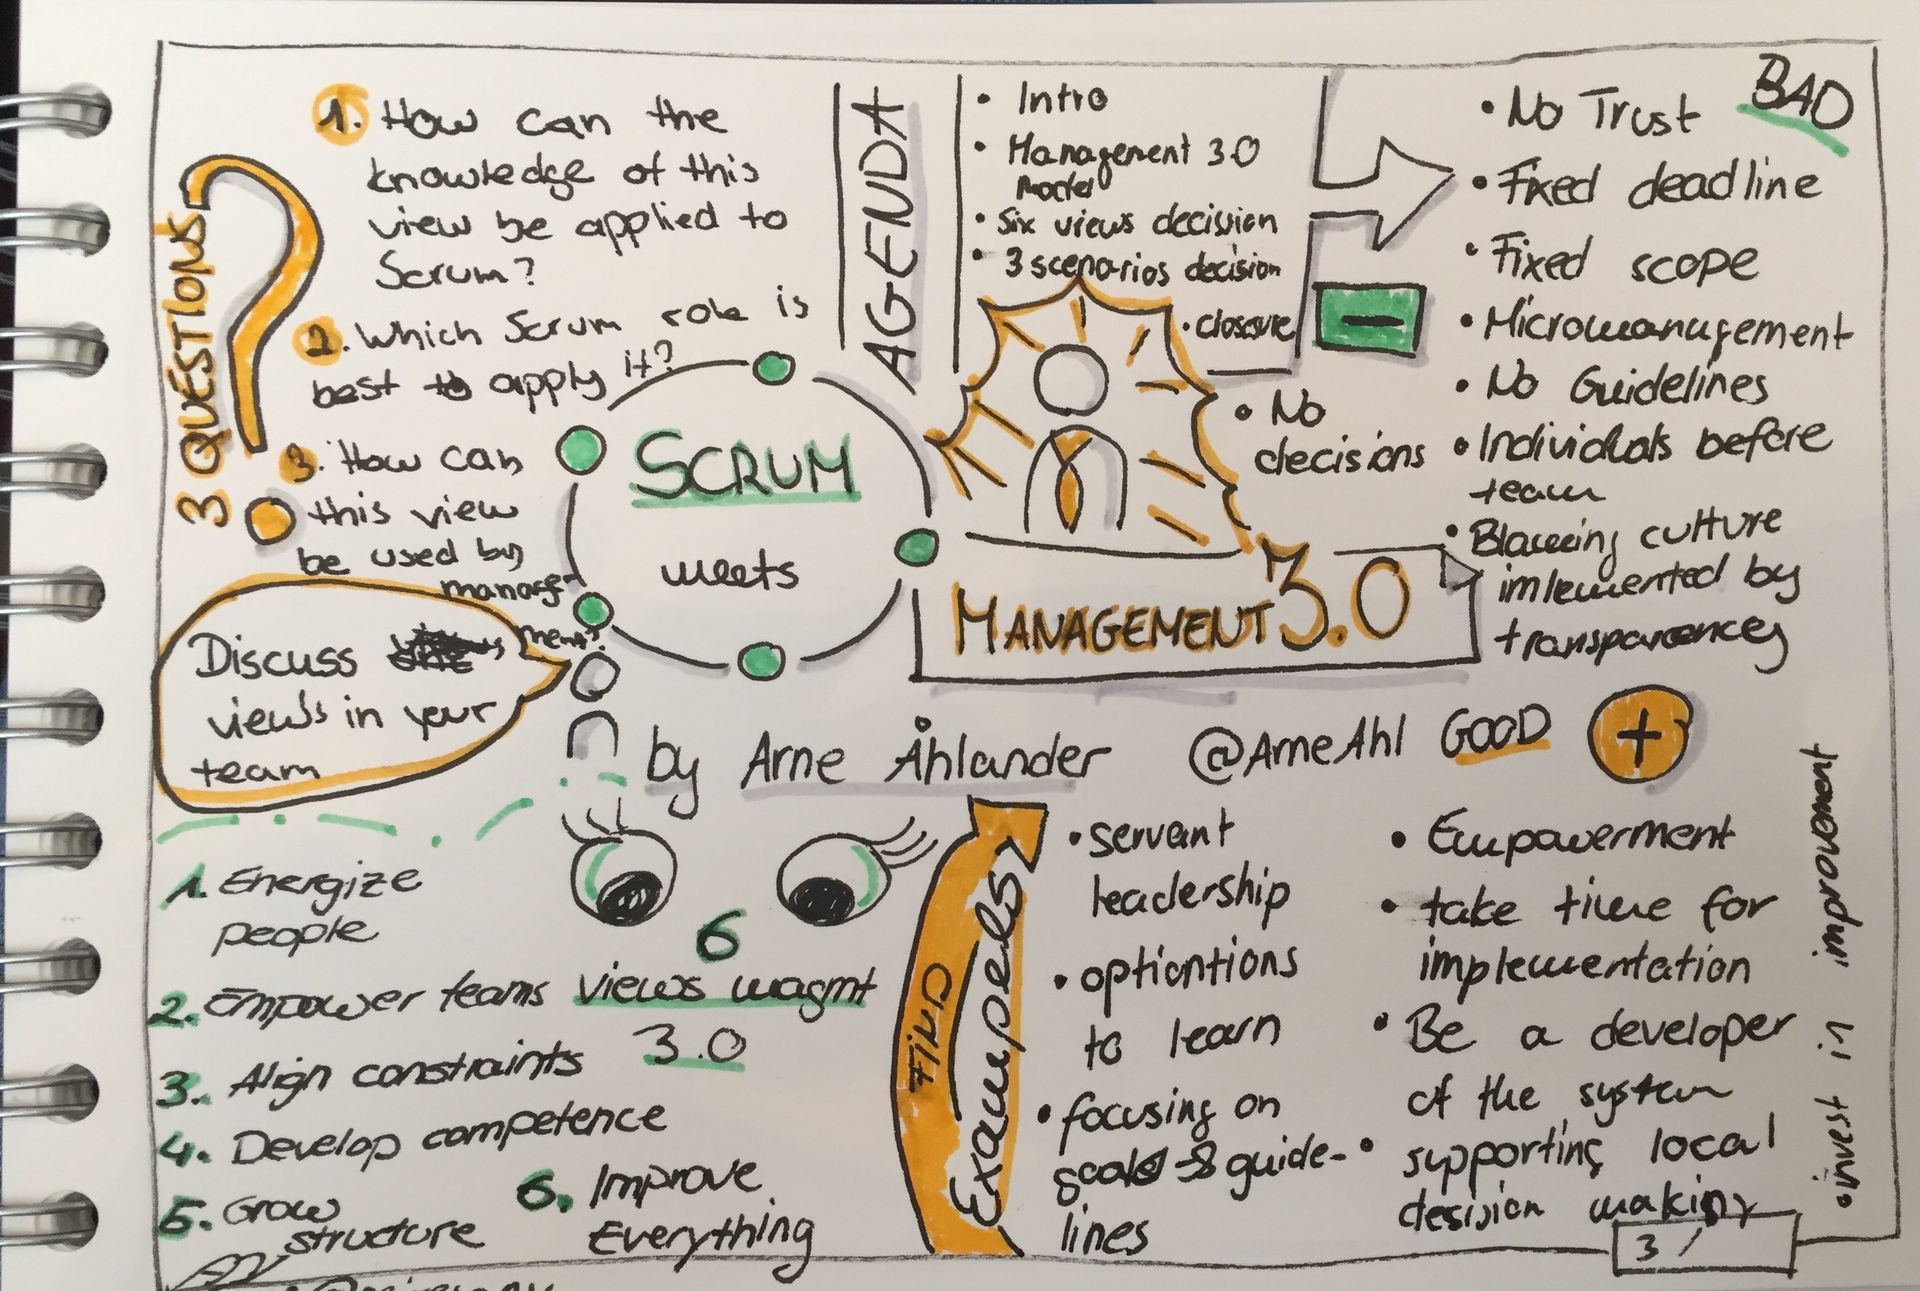 3 QUESTIONS
1. How can the
knowledge of this
view be applied to
Scrum?
2. Which Scrum role is
best to apply it?
3. How can
this view
be used by
manage-
ment?
Discuss
views in your
team
AGENDA
• Intro
• Management 3.0
Model
• Six views decision
• 3 scenarios decision
• closure
SCRUM
meets
MANAGEMENT 3.0
by Arne Åhlander @ArneAhl
BAD
• No Trust
• Fixed deadline
• Fixed scope
• Micromanagement
• No Guidelines
• Individuals before
team
• Blameing culture
imlemented by
transparancy
• No
decisions
GOOD +
6
views magmt
3.0
1. Energize
people
2. Empower teams
3. Align constraints
4. Develop competence
5. Grow
structure
6. Improve
Everything
FIND
Exampels
• servant
leadership
• optiontions
to learn
• focusing on
goals & guide-
lines
• Empowerment
• take time for
implementation
• Be a developer
of the system
• supporting local
desision making
• invest in improvement
3/